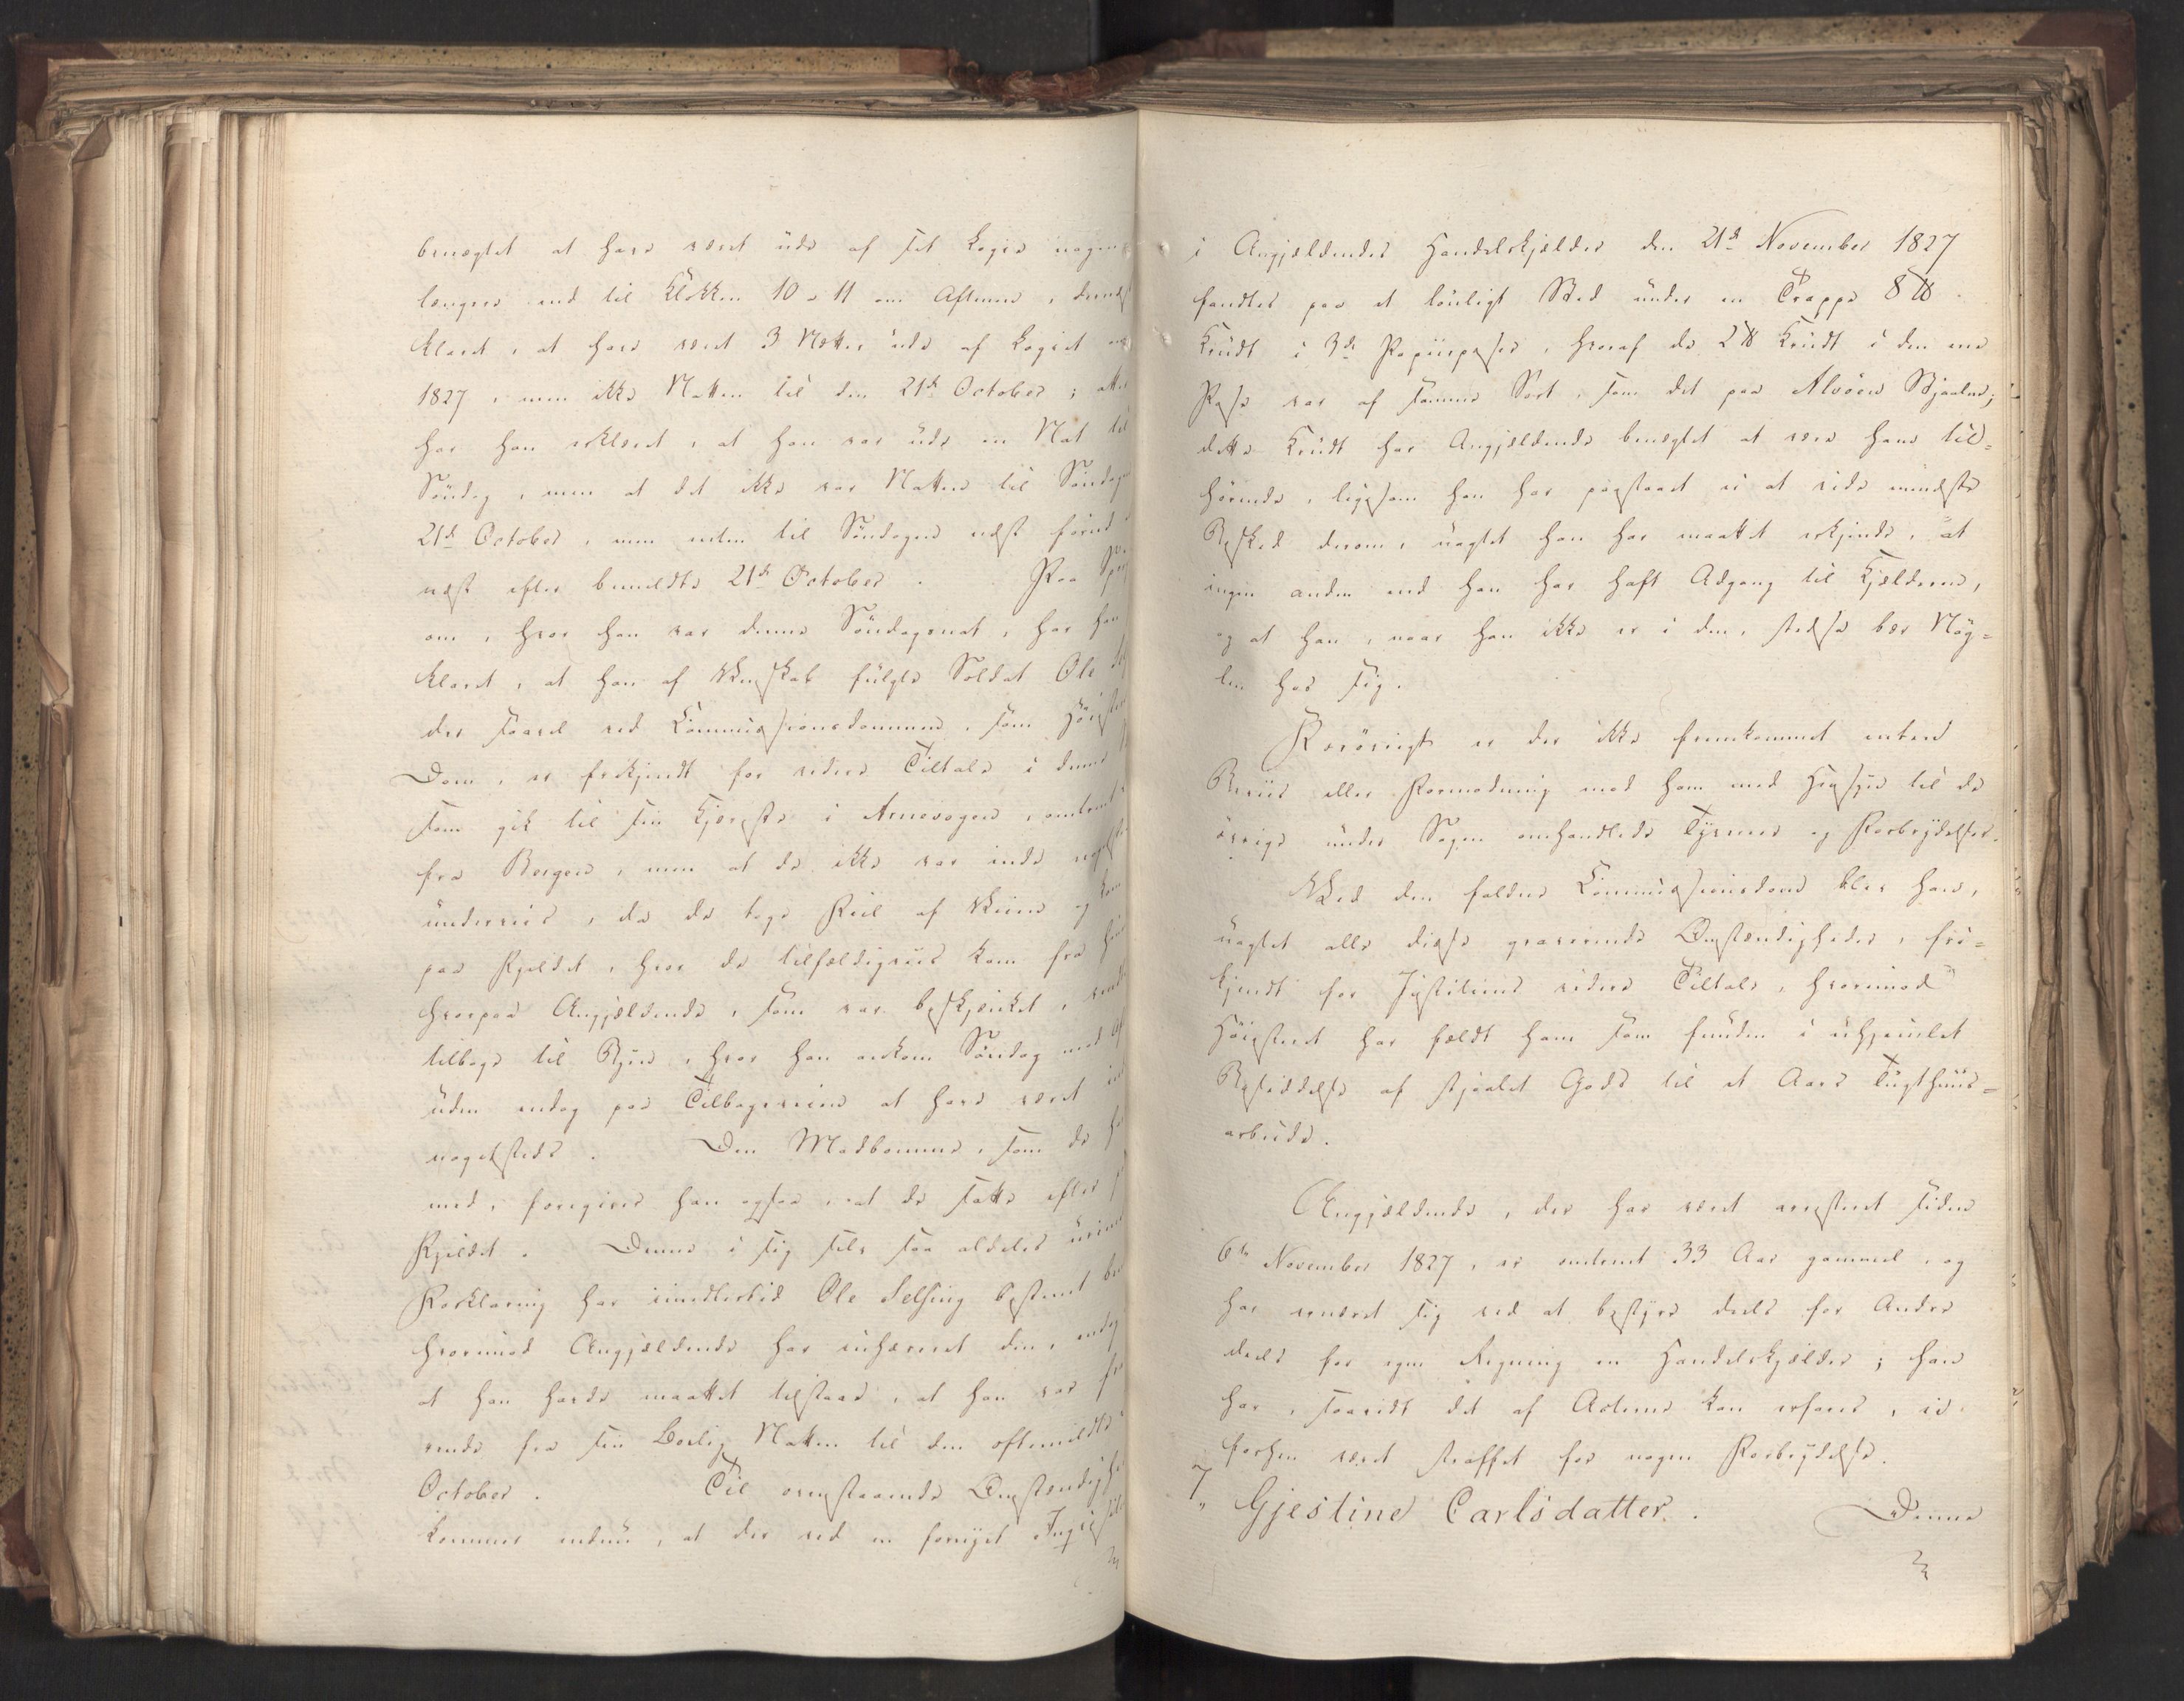 benægtet at have været ude af sit Logis nogen
længere end til Klokken 10 a 11 om Aftenen, dernæst
klaret, at have været 3 Nætter ude af Logiet
1827, men ikke Natten til den 21de October; atter
har han erklæret, at han var ude en Nat til
Söndag, men at det ikke var Natten til Söndagen
21de October, men enten til Söndagen næst förend
næst efter bemeldte 21de October. Paa
om, hvor han var denne Söndagsnat, har han
klaret, at han af Venskab fulgte Soldat Ole
der saavel ved Commissionsdommen, som Höiesterets
Dom, er frikjendt for videre Tiltale i denne
som gik til sin Kjæreste i Arnevogen, omtrent
fra Bergen, men at de ikke var inde nogetsteds
underveis, da de toge Feil af Veien og kom
paa Fjeldet, hvor de tilfældigviis kom fra
hvorpaa Angjældende, som var beskjænket, vendte
tilbage til Byen, hvor han ankom Söndag
uden endog paa Tilbageveien at have været
nogetsteds. Den Madbomme, som de
med, foregiver han ogsaa, at de satte efter
Fjeldet. Denne i sig selv saa aldeles
Forklaring har imidlertid Ole Selsing bestemt
hvorimod Angjældende har inhæreret den, endog
at han havde maattet tilstaae, at han var
rende fra sin Bolig Natten til den oftemeldte
October. Til ovenstaaende
kommer endnu, at der ved en fornyet
i Angjældendes Handelskjælder den 21de November 1827
fandtes paa et lönligt Sted under en Trappe 8 ℔
Krudt i 3de Papiirposer, hvoraf de 2 ℔ Krudt i den ene
Pose var af samme Sort, som det paa Alvöen Stjaalne;
dette Krudt har Angjældende benægtet at være hans til=
hörende, ligesom han har paastaaet ei at vide mindste
Besked derom, uagtet han har maattet erkjende, at
ingen anden end han har haft Adgang til Kjælderen,
og at han, naar han ikke er i den, stedse bær Nög=
len hos sig.
Forövrigt er der ikke fremkommet enten
Beviis eller Formodning mod ham med Hensyn til de
övrige under Sagen omhandlede Tyverier og Forbrydelser.
Ved den faldne Commissionsdom blev han,
uagtet alle disse graverende Omstændigheder, fri=
kjendt for Justitiens videre Tiltale, hvorimod
Höiesteret har fældt ham som funden i uhjemlet
Besiddelse af stjaalet Gods til et Aars Tugthuus=
arbeide.
Angjældende, der har været arresteret siden
6te November 1827, er omtrent 33 Aar gammel, og
har ernæret sig ved at bestyre deels for Andre
deels for egen Regning en Handelskjælder; han
har, saavidt det af Acterne kan erfares, ei
forhen været straffet for nogen Forbrydelse.
7, Gjestine Carlsdatter. Denne